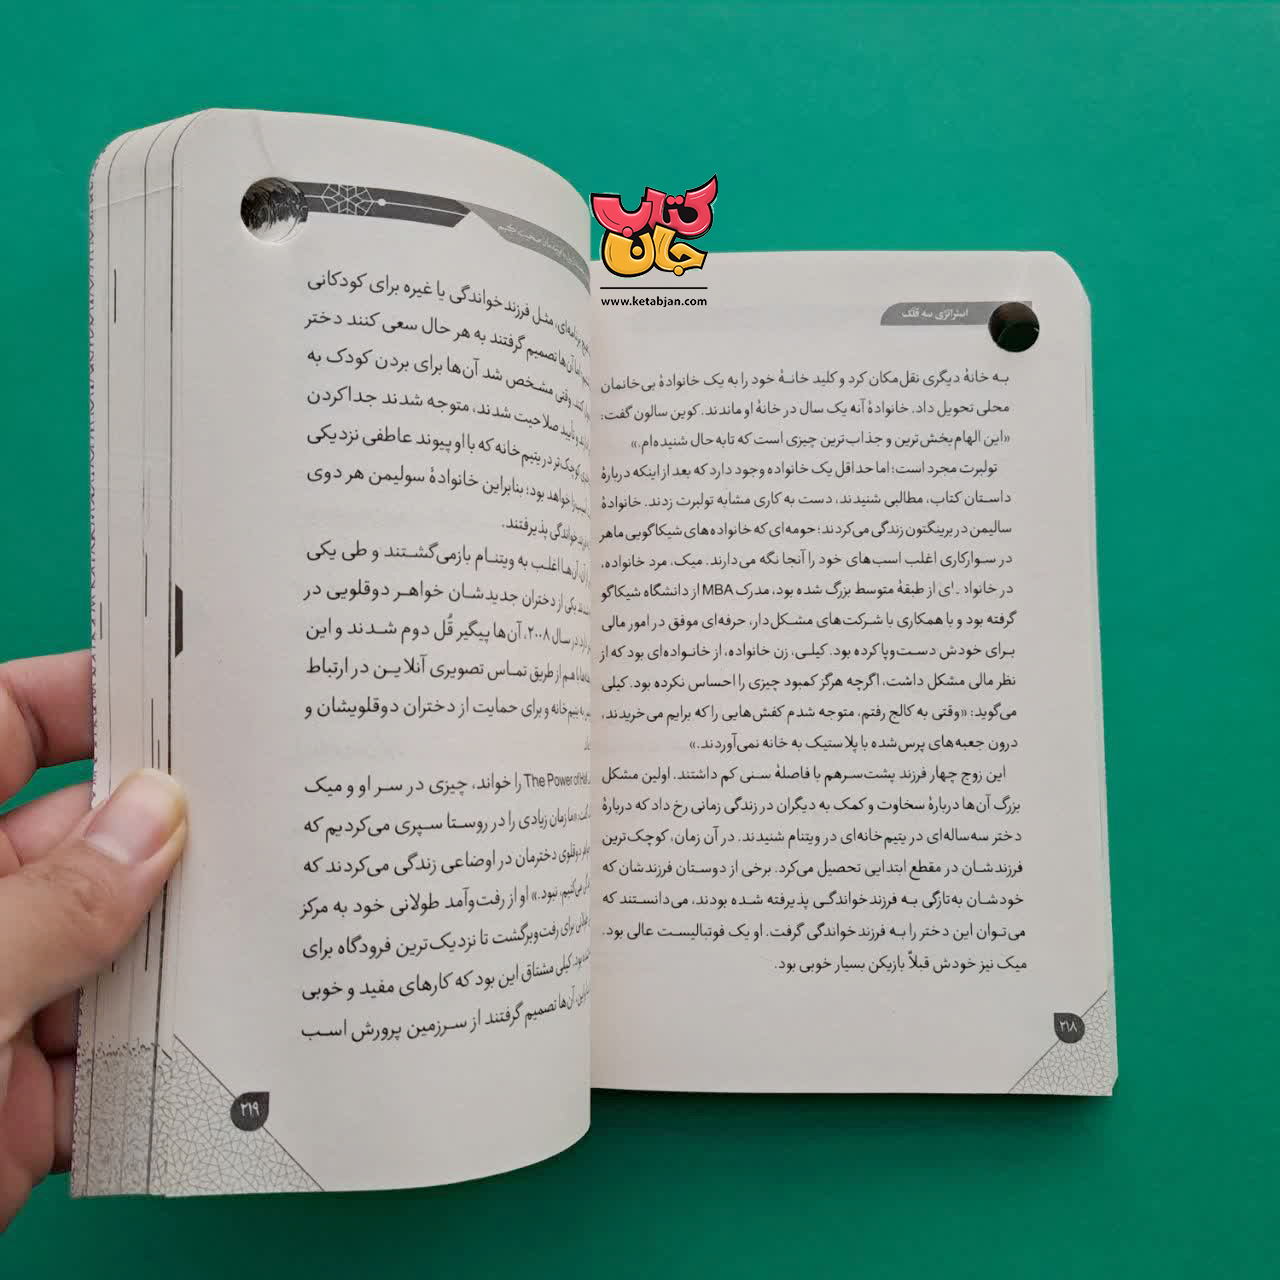 کتاب
جان
www.ketabjan.com
استراتژی سه قلک
بـه خانهٔ دیگری نقل‌مکان کرد و کلید خانـهٔ خود را به یک خانوادهٔ بی‌خانمان
محلی تحویل داد. خانوادهٔ آنه یک سال در خانهٔ او ماندند. کوین سالون گفت:
«این الهام‌بخش‌ترین و جذاب‌ترین چیزی است که تابه‌حال شنیده‌ام.»
تولبرت مجرد است؛ اما حداقل یک خانواده وجود دارد که بعد از اینکه دربارهٔ
داستان کتاب، مطالبی شنیدند، دست به کاری مشابه تولبرت زدند. خانوادهٔ
سالیمن در برینگتون زندگی می‌کردند؛ حومه‌ای که خانواده‌های شیکاگویی ماهر
در سوارکاری اغلب اسب‌های خود را آنجا نگه می‌دارند. میک، مرد خانواده،
در خانواده‌ای از طبقهٔ متوسط بزرگ شده بود، مدرک MBA از دانشگاه شیکاگو
گرفته بود و با همکاری با شرکت‌های مشکل‌دار، حرفه‌ای موفق در امور مالی
برای خودش دست‌وپا کرده بود. کیلی، زن خانواده، از خانواده‌ای بود که از
نظر مالی مشکل داشت، اگرچه هرگز کمبود چیزی را احساس نکرده بود. کیلی
می‌گوید: «وقتی به کالج رفتم، متوجه شدم کفش‌هایی را که برایم می‌خریدند،
درون جعبه‌های پرس‌شده با پلاستیک به خانه نمی‌آوردند.»
این زوج چهار فرزند پشت‌سرهم با فاصلهٔ سنی کم داشتند. اولین مشکل
بزرگ آن‌ها دربارهٔ سخاوت و کمک به دیگران در زندگی زمانی رخ داد که دربارهٔ
دختر سه‌ساله‌ای در یتیم‌خانه‌ای در ویتنام شنیدند. در آن زمان، کوچک‌ترین
فرزندشان در مقطع ابتدایی تحصیل می‌کرد. برخی از دوستان فرزندشان که
خودشان به‌تازگی به فرزندخواندگی پذیرفته شده بودند، می‌دانستند که
می‌توان این دختر را به فرزندخواندگی گرفت. او یک فوتبالیست عالی بود.
میک نیز خودش قبلاً بازیکن بسیار خوبی بود.
۲۱۸
مثل فرزندخواندگی یا غیره برای کودکانی
آن‌ها تصمیم گرفتند به هر حال سعی کنند دختر
وقتی مشخص شد آن‌ها برای بردن کودک به
تأیید صلاحیت شدند، متوجه شدند جدا کردن
کوچک‌تر در یتیم‌خانه که با او پیوند عاطفی نزدیکی
خواهد بود؛ بنابراین خانوادهٔ سولیمن هر دوی
خواندگی پذیرفتند.
آن‌ها اغلب به ویتنام بازمی‌گشتند و طی یکی
یکی از دختران جدیدشان خواهر دوقلویی در
در سال ۲۰۰۸، آن‌ها پیگیر قُل دوم شدند و این
با هم از طریق تماس تصویری آنلاین در ارتباط
به یتیم‌خانه و برای حمایت از دختران دوقلویشان و
The Power of Half را خواند، چیزی در سر او و میک
«ما زمان زیادی را در روستا سپری می‌کردیم که
دوقلوی دخترمان در اوضاعی زندگی می‌کردند که
می‌کنیم، نبود.» او از رفت‌وآمد طولانی خود به مرکز
برای رفت‌وبرگشت تا نزدیک‌ترین فرودگاه برای
بود. کیلی مشتاق این بود که کارهای مفید و خوبی
آن‌ها تصمیم گرفتند از سرزمین پرورش اسب
۲۱۹